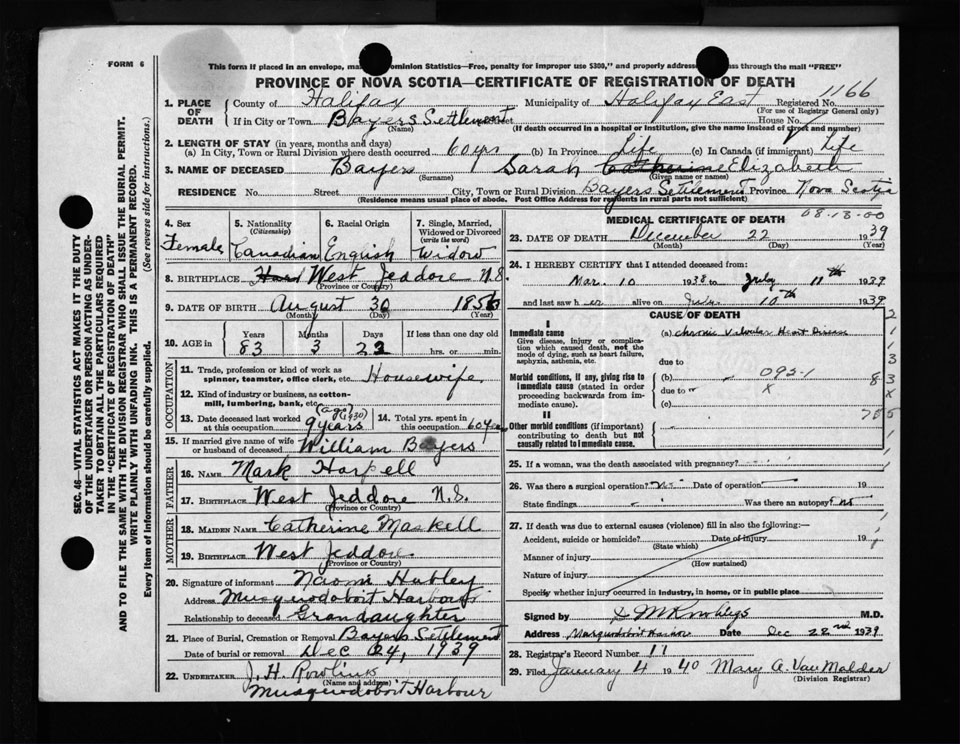 FORM 6
This form if placed in an envelope, ominion Statistics—Free, penalty for improper use $300," and properly address ss through the mail "FREE"
PROVINCE OF NOVA SCOTIA—CERTIFICATE OF REGISTRATION OF DEATH
1166
1. PLACE OF DEATH
County of Halifax Municipality of Halifax East Registered No.
(For use of Registrar General only)
If in City or Town Bayers Settlement Street House No.
(Name) (If death occurred in a hospital or institution, give the name instead of street and number)
2. LENGTH OF STAY (in years, months and days)
(a) In City, Town or Rural Division where death occurred 60 yrs (b) In Province Life (c) In Canada (if immigrant) Life
3. NAME OF DECEASED Bayers Sarah Catherine Elizabeth
(Surname) (Given name or names)
RESIDENCE No. Street City, Town or Rural Division Bayers Settlement Province Nova Scotia
(Residence means usual place of abode. Post Office Address for residents in rural parts not sufficient)
4. Sex Female
5. Nationality (Citizenship) Canadian
6. Racial Origin English
7. Single, Married, Widowed or Divorced (write the word) Widow
8. BIRTHPLACE West Jeddore N.S.
(Province or Country)
9. DATE OF BIRTH August 30 1856
(Month) (Day) (Year)
10. AGE in Years Months Days If less than one day old
83 3 22 hrs. or min.
OCCUPATION
11. Trade, profession or kind of work as spinner, teamster, office clerk, etc. Housewife
12. Kind of industry or business, as cotton-mill, lumbering, bank, etc.
13. Date deceased last worked at this occupation (age) (1930) 9 years
14. Total yrs. spent in this occupation 60 years
15. If married give name of wife or husband of deceased William Bayers
FATHER
16. NAME Mark Harpell
17. BIRTHPLACE West Jeddore N.S.
(Province or Country)
MOTHER
18. MAIDEN NAME Catherine Maskell
19. BIRTHPLACE West Jeddore
(Province or Country)
20. Signature of informant Naomi Hubley
Address Musquodoboit Harbour
Relationship to deceased Grandaughter
21. Place of Burial, Cremation or Removal Bayers Settlement
Date of burial or removal Dec 24, 1939
22. UNDERTAKER J. H. Rowlink
(Name and address)
Musquodoboit Harbour
08-13-00
MEDICAL CERTIFICATE OF DEATH
23. DATE OF DEATH December 22 1939
(Month) (Day) (Year)
24. I HEREBY CERTIFY that I attended deceased from:
Mar. 10 1938 to July 11th 1939
and last saw her alive on July 10th 1939
CAUSE OF DEATH
I
Immediate cause (a) Chronic Valvular Heart Disease
Give disease, injury or complication which caused death, not the mode of dying, such as heart failure, asphyxia, asthenia, etc.
due to
Morbid conditions, if any, giving rise to immediate cause (stated in order proceeding backwards from immediate cause).
(b) 092-1
due to x
(c)
II
Other morbid conditions (if important) contributing to death but not causally related to immediate cause.
25. If a woman, was the death associated with pregnancy?
26. Was there a surgical operation? Date of operation 19
State findings Was there an autopsy? no
27. If death was due to external causes (violence) fill in also the following:—
Accident, suicide or homicide? Date of injury 19
(State which)
Manner of injury
(How sustained)
Nature of injury
Specify whether injury occurred in industry, in home, or in public place
Signed by M.D.
Address Musquodoboit Harbour Date Dec 22nd 1939
28. Registrar's Record Number 11
29. Filed January 4 1940 Mary A. Van Malder
(Division Registrar)
SEC. 46—VITAL STATISTICS ACT MAKES IT THE DUTY
OF THE UNDERTAKER OR PERSON ACTING AS UNDER-
TAKER TO OBTAIN ALL THE PARTICULARS REQUIRED
IN THE "CERTIFICATE OF REGISTRATION OF DEATH"
AND TO FILE THE SAME WITH THE DIVISION REGISTRAR WHO SHALL ISSUE THE BURIAL PERMIT.
WRITE PLAINLY WITH UNFADING INK. THIS IS A PERMANENT RECORD.
Every item of information should be carefully supplied. (See reverse side for instructions.)